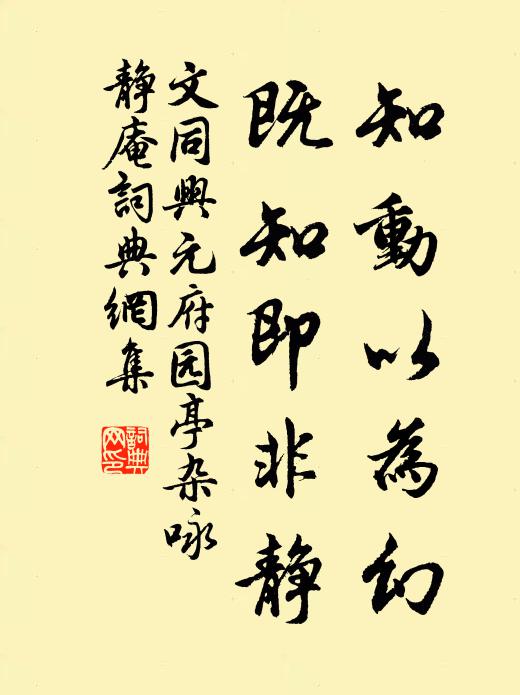 知動以為幻
既知即非静
文同興元府园亭杂咏
静庵詞典網集
詞典
网印